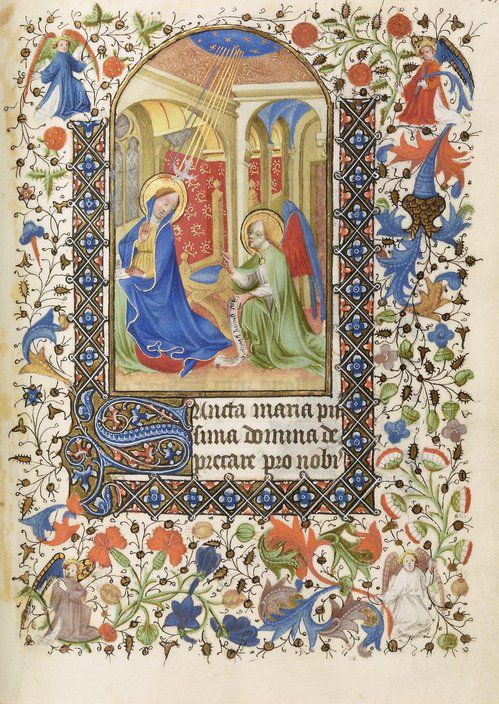 Sancta maria pii
sima domina de
precare pro nobi'